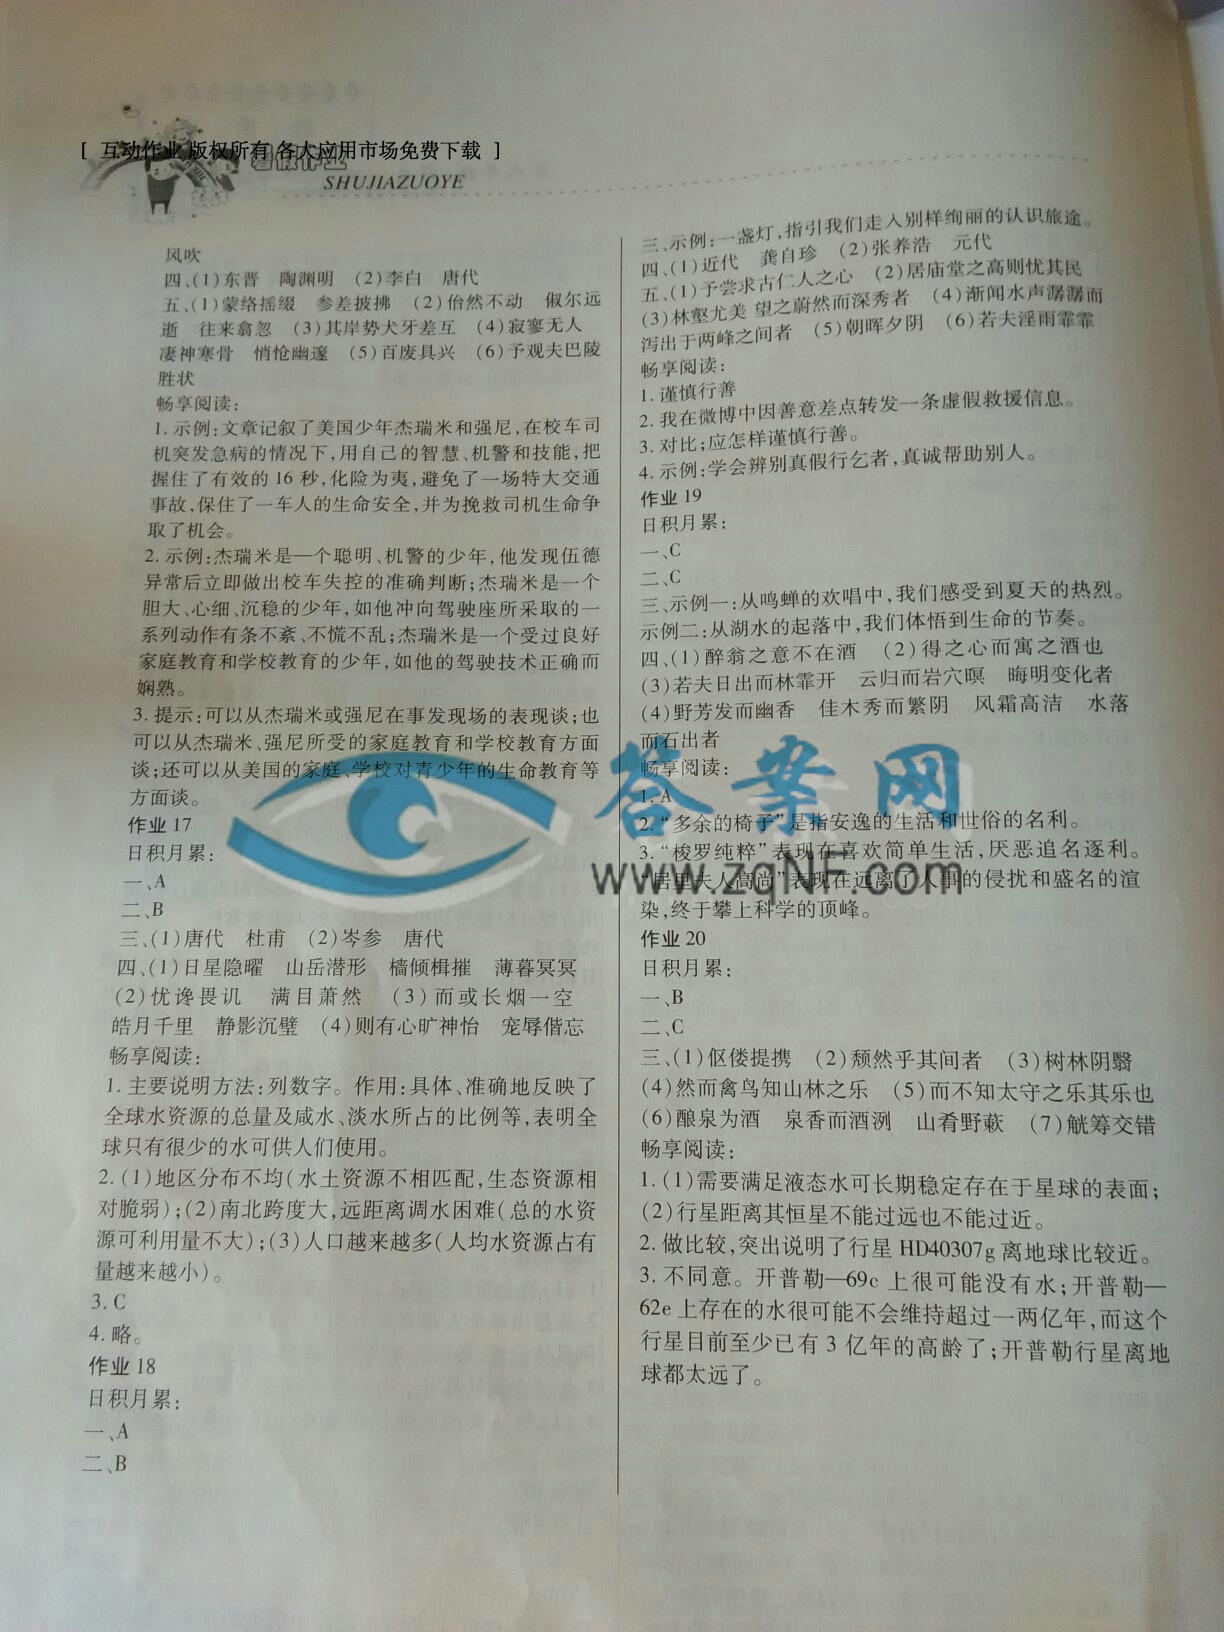 [ 互动作业 版权所有 各大应用市场免费下载 ]
暑假作业
SHUJIAZUOYE
风吹
四、(1)东晋 陶渊明 (2)李白 唐代
五、(1)蒙络摇缀 参差披拂 (2)佁然不动 俶尔远
逝 往来翕忽 (3)其岸势犬牙差互 (4)寂寥无人
凄神寒骨 悄怆幽邃 (5)百废具兴 (6)予观夫巴陵
胜状
畅享阅读:
1. 示例:文章记叙了美国少年杰瑞米和强尼,在校车司
机突发急病的情况下,用自己的智慧、机警和技能,把
握住了有效的 16 秒,化险为夷,避免了一场特大交通
事故,保住了一车人的生命安全,并为挽救司机生命争
取了机会。
2. 示例:杰瑞米是一个聪明、机警的少年,他发现伍德
异常后立即做出校车失控的准确判断;杰瑞米是一个
胆大、心细、沉稳的少年,如他冲向驾驶座所采取的一
系列动作有条不紊、不慌不乱;杰瑞米是一个受过良好
家庭教育和学校教育的少年,如他的驾驶技术正确而
娴熟。
3. 提示:可以从杰瑞米或强尼在事发现场的表现谈;也
可以从杰瑞米、强尼所受的家庭教育和学校教育方面
谈;还可以从美国的家庭、学校对青少年的生命教育等
方面谈。
作业 17
日积月累:
一、A
二、B
三、(1)唐代 杜甫 (2)岑参 唐代
四、(1)日星隐曜 山岳潜形 樯倾楫摧 薄暮冥冥
(2)忧谗畏讥 满目萧然 (3)而或长烟一空
皓月千里 静影沉璧 (4)则有心旷神怡 宠辱偕忘
畅享阅读:
1. 主要说明方法:列数字。作用:具体、准确地反映了
全球水资源的总量及咸水、淡水所占的比例等,表明全
球只有很少的水可供人们使用。
2. (1)地区分布不均(水土资源不相匹配,生态资源相
对脆弱);(2)南北跨度大,远距离调水困难(总的水资
源可利用量不大);(3)人口越来越多(人均水资源占有
量越来越小)。
3. C
4. 略。
作业 18
日积月累:
一、A
二、B
三、示例:一盏灯,指引我们走入别样绚丽的认识旅途。
四、(1)近代 龚自珍 (2)张养浩 元代
五、(1)予尝求古仁人之心 (2)居庙堂之高则忧其民
(3)林壑尤美 望之蔚然而深秀者 (4)渐闻水声潺潺而
泻出于两峰之间者 (5)朝晖夕阴 (6)若夫淫雨霏霏
畅享阅读:
1. 谨慎行善
2. 我在微博中因善意差点转发一条虚假救援信息。
3. 对比;应怎样谨慎行善。
4. 示例:学会辨别真假行乞者,真诚帮助别人。
作业 19
日积月累:
一、C
二、C
三、示例一:从鸣蝉的欢唱中,我们感受到夏天的热烈。
示例二:从湖水的起落中,我们体悟到生命的节奏。
四、(1)醉翁之意不在酒 (2)得之心而寓之酒也
(3)若夫日出而林霏开 云归而岩穴暝 晦明变化者
(4)野芳发而幽香 佳木秀而繁阴 风霜高洁 水落
而石出者
畅享阅读:
1. A
2. “多余的椅子”是指安逸的生活和世俗的名利。
3. “梭罗纯粹”表现在喜欢简单生活,厌恶追名逐利。
“居里夫人高尚”表现在远离了人事的侵扰和盛名的渲
染,终于攀上科学的顶峰。
作业 20
日积月累:
一、B
二、C
三、(1)伛偻提携 (2)颓然乎其间者 (3)树林阴翳
(4)然而禽鸟知山林之乐 (5)而不知太守之乐其乐也
(6)酿泉为酒 泉香而酒洌 山肴野蔌 (7)觥筹交错
畅享阅读:
1. (1)需要满足液态水可长期稳定存在于星球的表面;
(2)行星距离其恒星不能过远也不能过近。
2. 做比较,突出说明了行星 HD40307g 离地球比较近。
3. 不同意。开普勒—69c 上很可能没有水;开普勒—
62e 上存在的水很可能不会维持超过一两亿年,而这个
行星目前至少已有 3 亿年的高龄了;开普勒行星离地
球都太远了。
答案网
www.zqNF.com